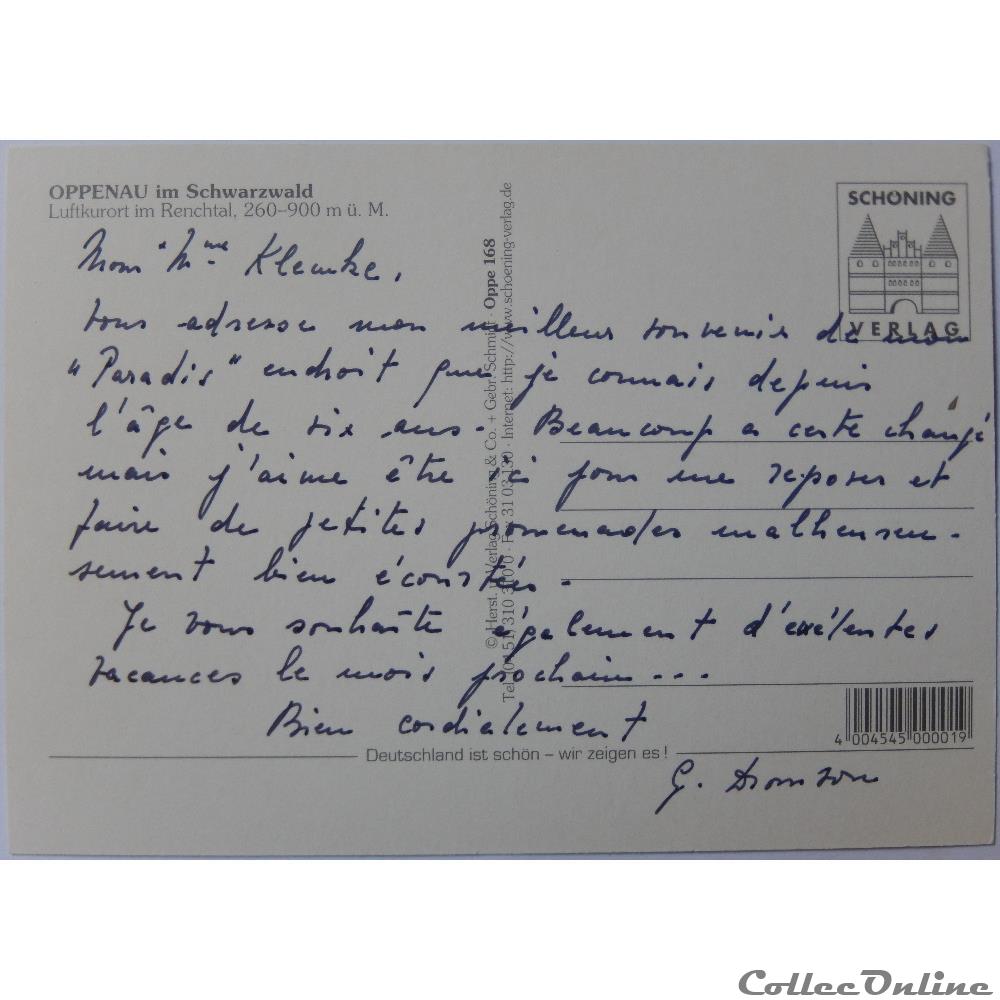 OPPENAU im Schwarzwald
Luftkurort im Renchtal, 260–900 m ü. M.
SCHÖNING
VERLAG
Mme Klemke,
vous adresse mon meilleur souvenir de mon
"Paradis" endroit que je connais depuis
l'âge de six ans. Beaucoup a certe changé
mais j'aime être ici pour me reposer et
faire de petites promenades malheureu-
sement bien écourtées.
Je vous souhaite également d'exélentes
vacances le mois prochain...
Bien cordialement
G.
© Herst. u. Verlag Schöning & Co. + Gebr. Schmidt · Oppe 168
Internet: http://www.schoening-verlag.de
Deutschland ist schön – wir zeigen es!
4 004545 000019
CollecOnline